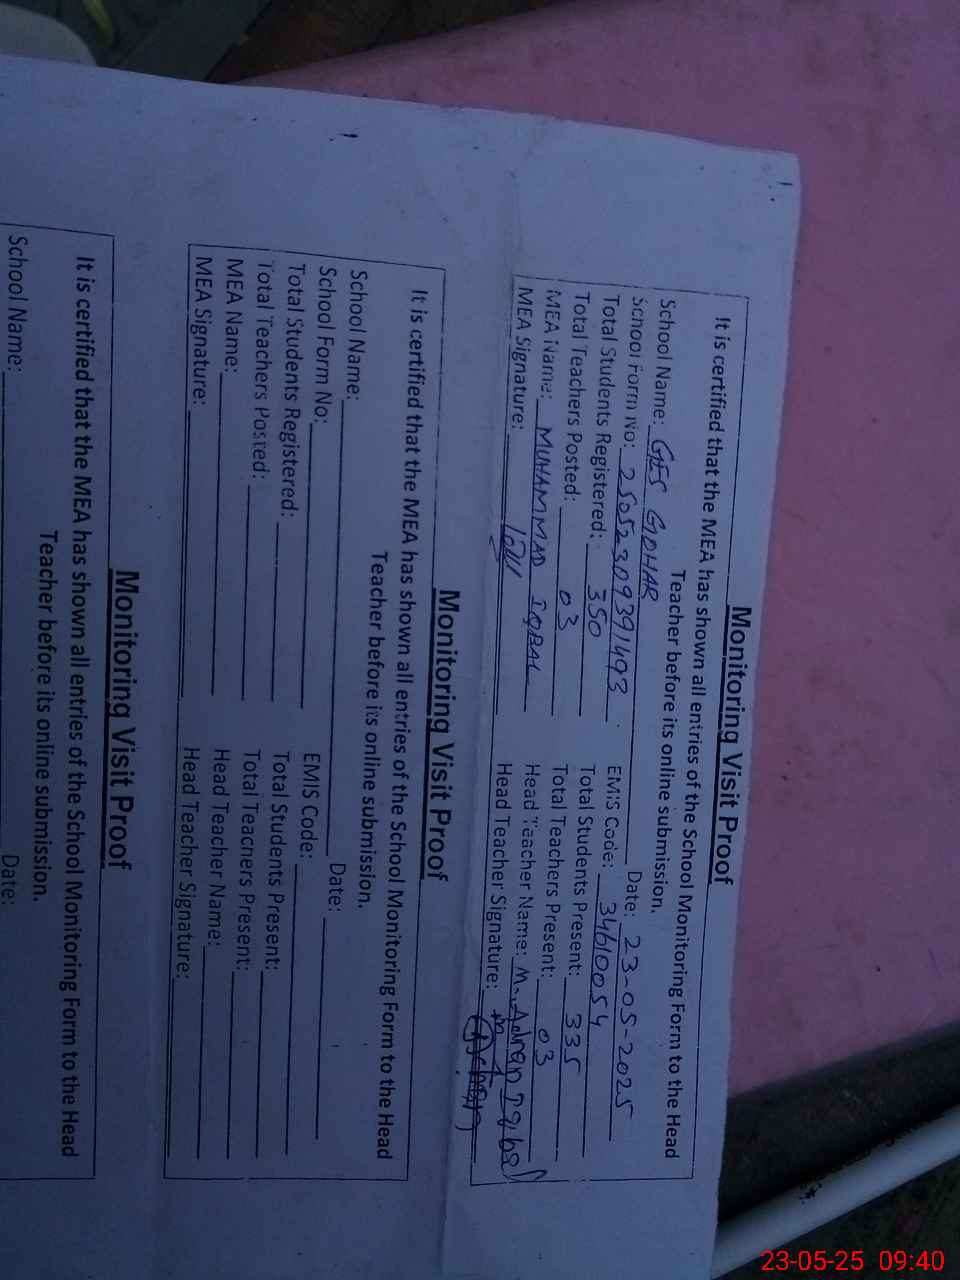 Monitoring Visit Proof
It is certified that the MEA has shown all entries of the School Monitoring Form to the Head
Teacher before its online submission.
School Name: GES GOHAR Date: 23-05-2025
School Form No: 25052309391493 EMIS Code: 34610054
Total Students Registered: 350 Total Students Present: 335
Total Teachers Posted: 03 Total Teachers Present: 03
MEA Name: MUHAMMAD IQBAL Head Teacher Name: M. Adnan Iqbal
MEA Signature: Head Teacher Signature:
Monitoring Visit Proof
It is certified that the MEA has shown all entries of the School Monitoring Form to the Head
Teacher before its online submission.
School Name: Date:
School Form No: EMIS Code:
Total Students Registered: Total Students Present:
Total Teachers Posted: Total Teachers Present:
MEA Name: Head Teacher Name:
MEA Signature: Head Teacher Signature:
Monitoring Visit Proof
It is certified that the MEA has shown all entries of the School Monitoring Form to the Head
Teacher before its online submission.
School Name: Date:
23-05-25 09:40